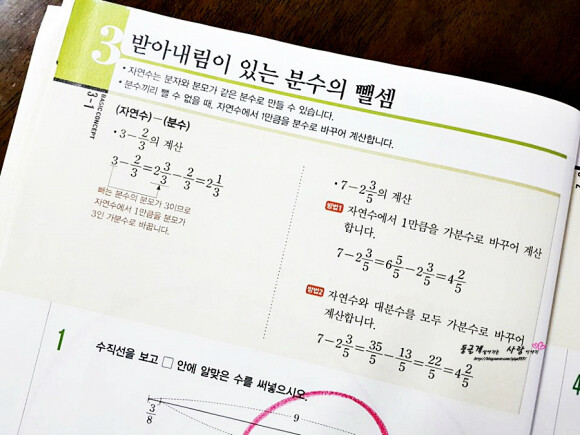 3 받아내림이 있는 분수의 뺄셈
• 자연수는 분자와 분모가 같은 분수로 만들 수 있습니다.
• 분수끼리 뺄 수 없을 때, 자연수에서 1만큼을 분수로 바꾸어 계산합니다.
BASIC CONCEPT
3-1
(자연수)-(분수)
• 3-2/3의 계산
3-2/3=2 3/3-2/3=2 1/3
빼는 분수의 분모가 3이므로
자연수에서 1만큼을 분모가
3인 가분수로 바꿉니다.
• 7-2 3/5의 계산
방법1 자연수에서 1만큼을 가분수로 바꾸어 계산
합니다.
7-2 3/5=6 5/5-2 3/5=4 2/5
방법2 자연수와 대분수를 모두 가분수로 바꾸어
계산합니다.
7-2 3/5=35/5-13/5=22/5=4 2/5
사랑
1
수직선을 보고 □ 안에 알맞은 수를 써넣으시오.
3/8
9
4